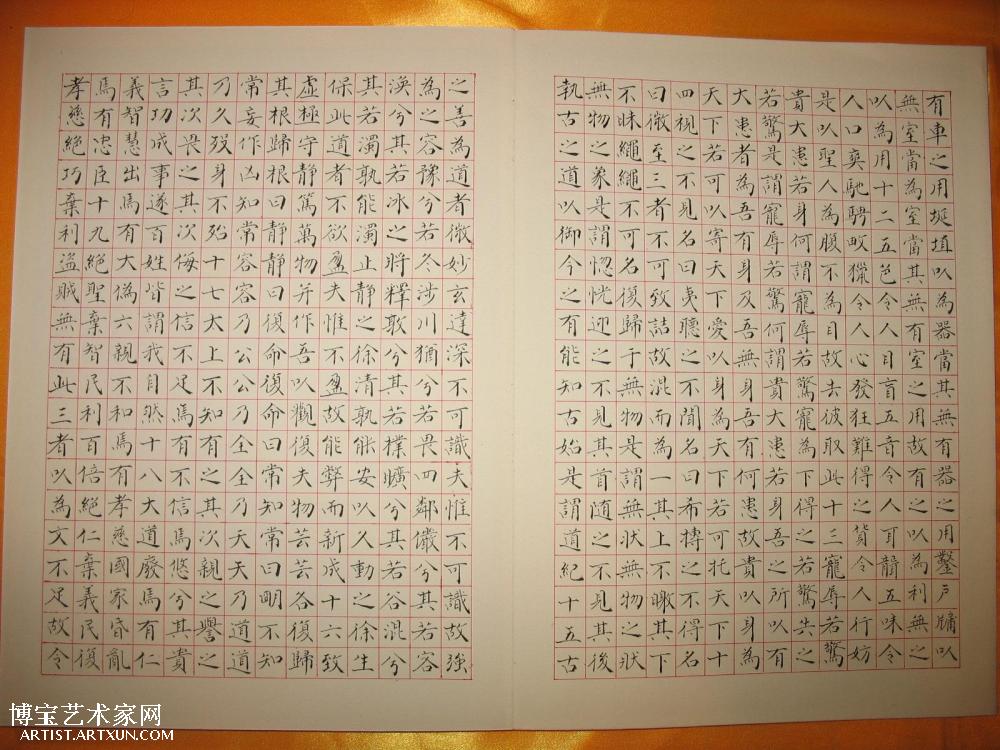 有車之用埏埴以為器當其無有器之用鑿戶牖以
無室當為室當其無有室之用故有之以為利無之
以為用十二五色令人目盲五音令人耳聾五味令
人口爽馳騁畋獵令人心發狂難得之貨令人行妨
是以聖人為腹不為目故去彼取此十三寵辱若驚
貴大患若身何謂寵辱若驚寵為下得之若驚失之
若驚是謂寵辱若驚何謂貴大患若身吾之所以有
大患者為吾有身及吾無身吾有何患故貴以身為
天下若可以寄天下愛以身為天下若可托天下十
四視之不見名曰夷聽之不聞名曰希摶之不得名
曰微至三者不可致詰故混而為一其上不曒其下
不昧繩繩不可名復歸于無物是謂無狀無物之狀
無物之象是謂惚恍迎之不見其首随之不見其後
執古之道以御今之有能知古始是謂道紀十五古
之善為道者微妙玄達深不可識夫惟不可識故強
為之容豫兮若冬涉川猶兮若畏四鄰儼兮其若容
渙兮其若冰之將釋敦兮其若樸曠兮其若谷混兮
其若濁孰能濁止靜之徐清孰能安以久動之徐生
保此道者不欲盈夫惟不盈故能弊而新成十六致
虛極守靜篤萬物并作吾以觀復夫物芸芸各復歸
其根歸根曰靜靜曰復命復命曰常知常曰明不知
常妄作凶知常容容乃公公乃全全乃天天乃道道
乃久歿身不殆十七大上不知有之其次親之譽之
其次畏之其次侮之信不足焉有不信焉悠兮其貴
言功成事遂百姓皆謂我自然十八大道廢焉有仁
義智慧出焉有大偽六親不和焉有孝慈國家昏亂
焉有忠臣十九絕聖棄智民利百倍絕仁棄義民復
孝慈絕巧棄利盜賊無有此三者以為文不足故令
博宝艺术家网
ARTIST.ARTXUN.COM